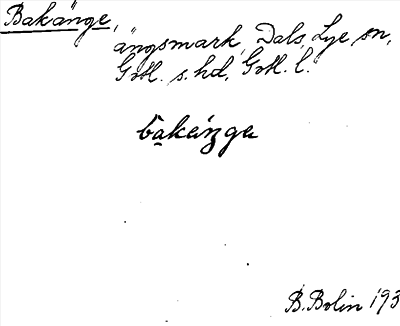 Bakänge,
ängsmark, Dals, Lye sn,
Gotl. s. hd, Gotl. l.
bakäŋga
B. Bolin 193